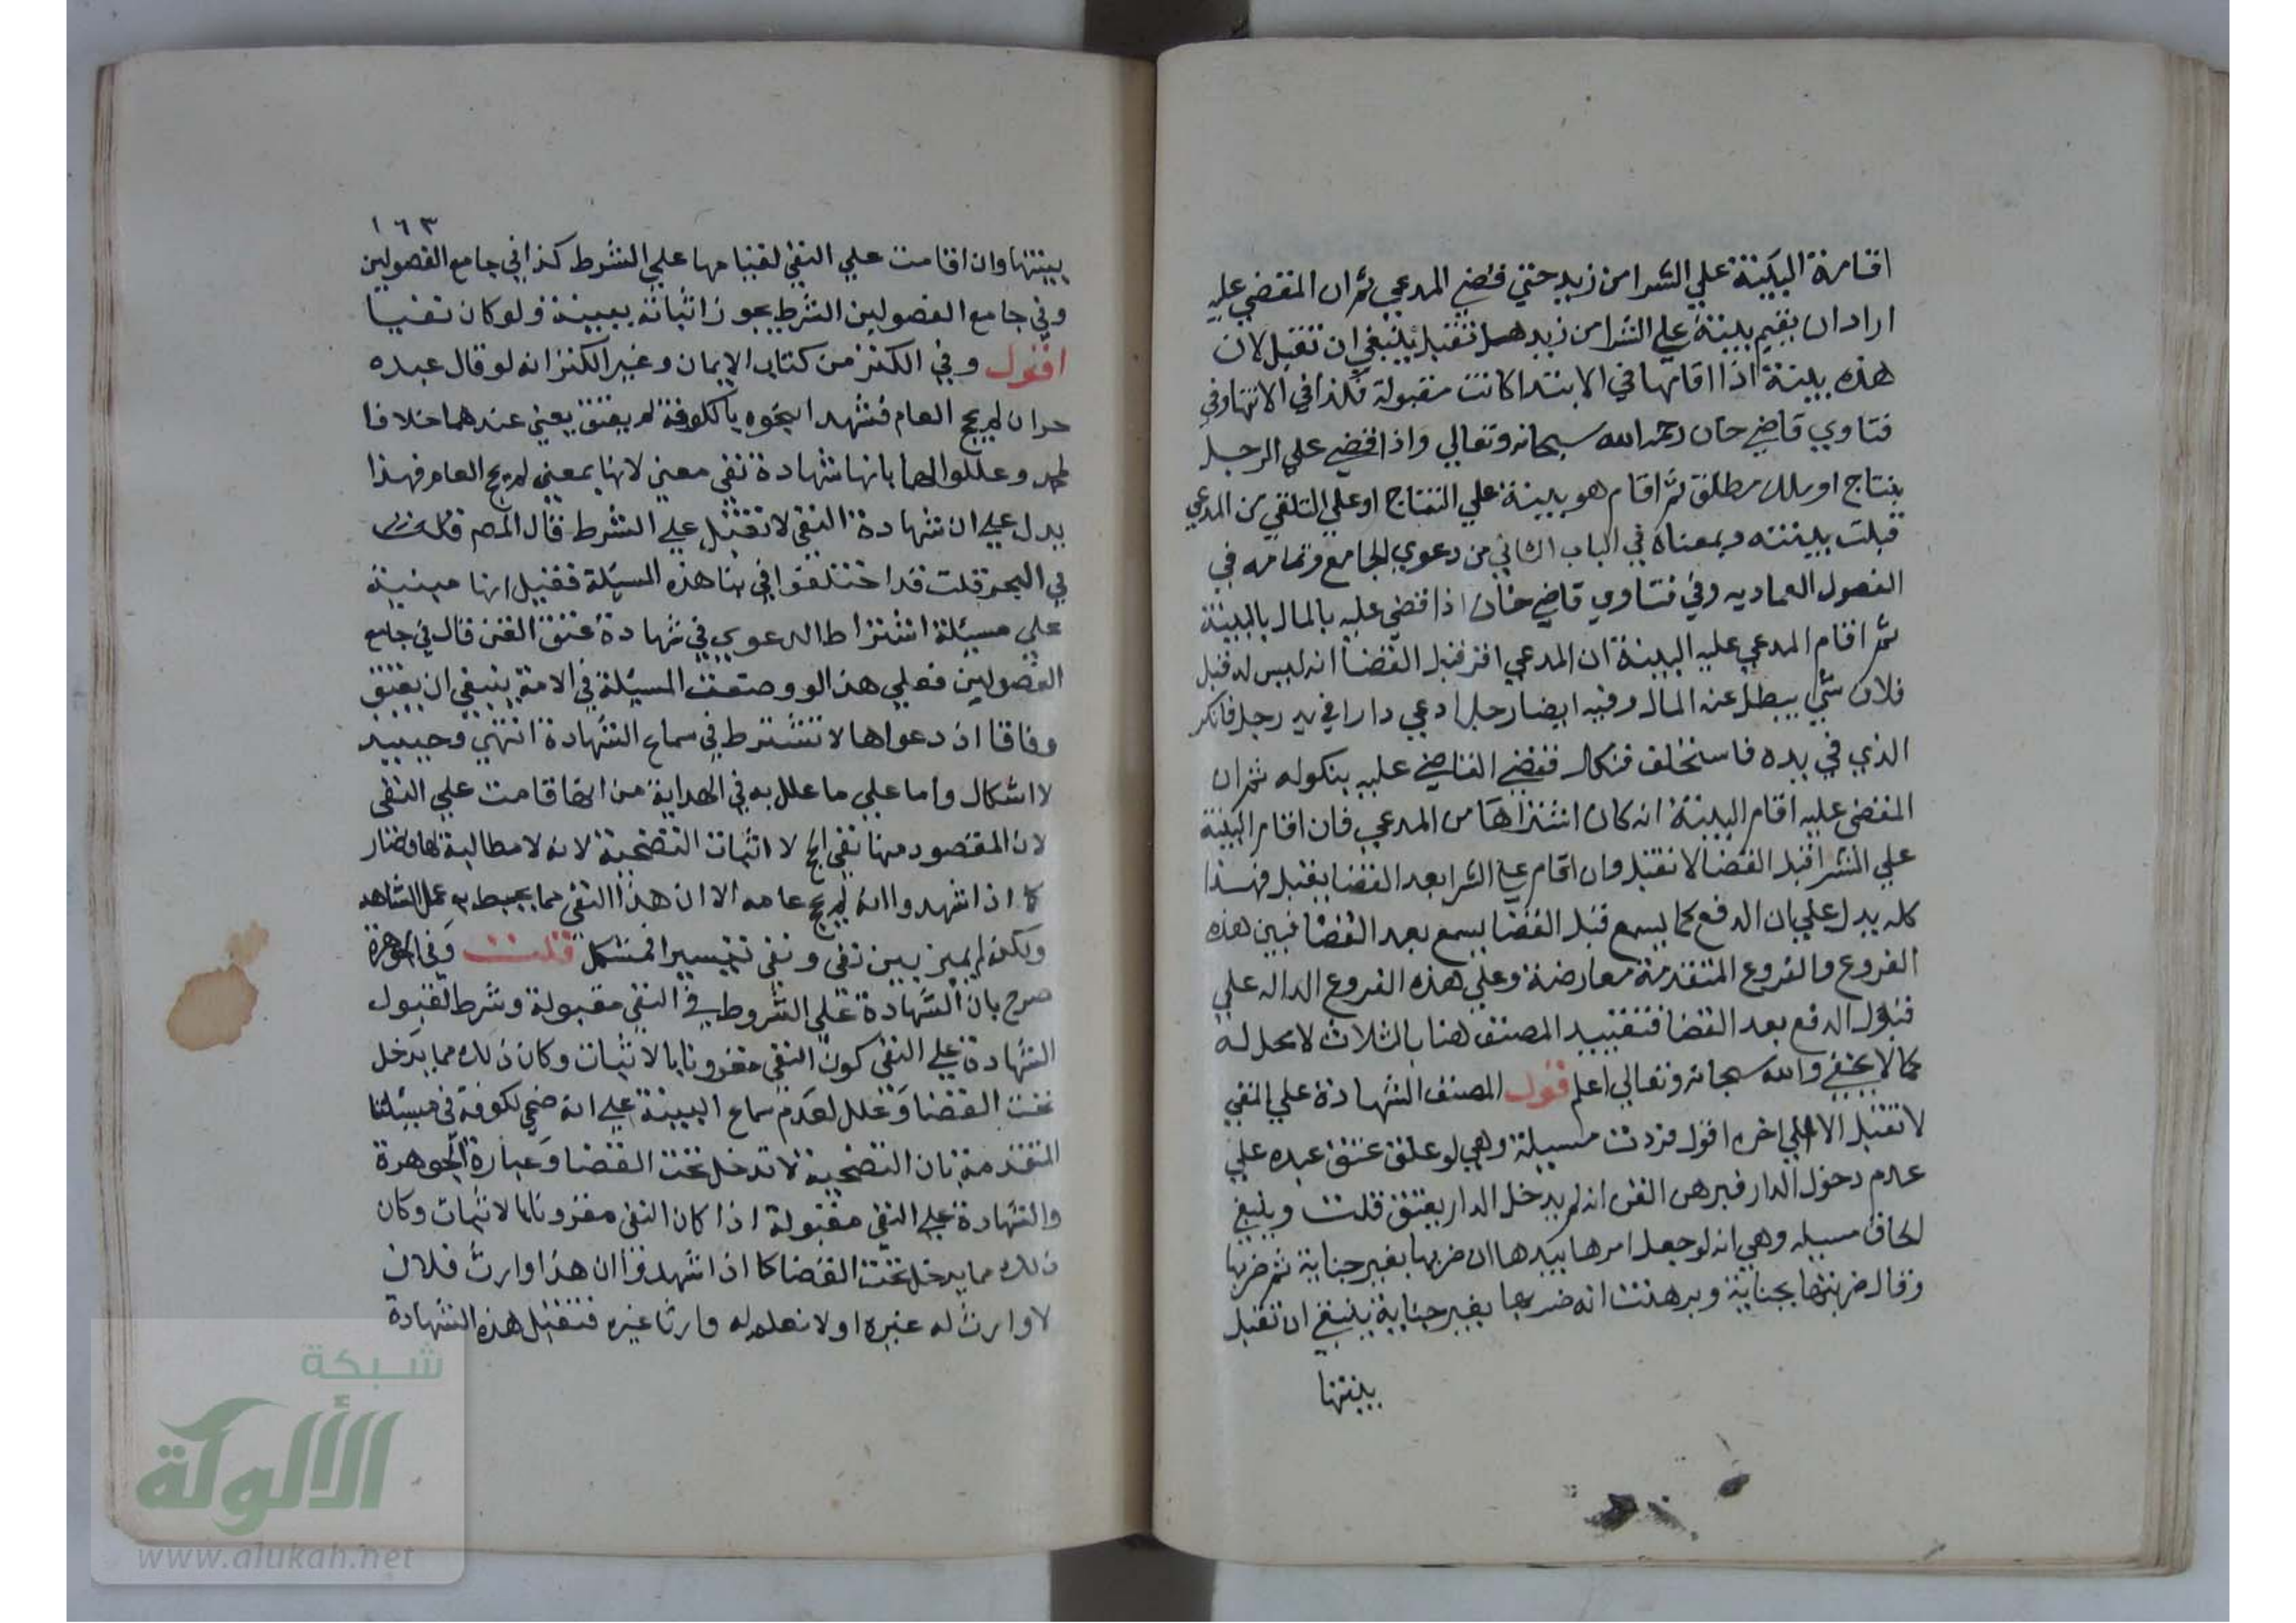 اقامة البينة علي الشرا من زيد حتي قضي المدعي ثم ان المقضي عليه
اراد ان يقيم بينة علي الشرا من زيد هل تقبل ينبغي ان تقبل لان
هذه بينة اذا اقامها في الابتدا كانت مقبولة فكذا في الانتها وفي
فتاوي قاضي خان رحمه الله سبحانه وتعالي واذا قضي علي الرجل
بنتاج او ملك مطلق ثم اقام هو بينة علي النتاج او علي التلقي من المدعي
قبلت بينته وبمعناه في الباب الثاني من دعوي الجامع وتمامه في
الفصول العماديه وفي فتاوي قاضي خان اذا قضي عليه بالمال بالبينة
ثم اقام المدعي عليه البينة ان المدعي اقر قبل القضا انه ليس له قبل
فلان شي يبطل عنه المال وفيه ايضا رجل ادعي دارا في يد رجل فانكر
الذي في يده فاستحلف فنكل فقضي القاضي عليه بنكوله ثم ان
المقضي عليه اقام البينة انه كان اشتراها من المدعي فان اقام البينة
علي الشرا قبل القضا لا تقبل وان اقام علي الشرا بعد القضا يقبل فهذا
كله يدل علي بان الدفع كما يسمع قبل القضا يسمع بعد القضا فبين هذه
الفروع والفروع المتقدمة معارضة وعلي هذه الفروع الداله علي
قبول الدفع بعد القضا فتقييد المصنف هنا بالثلاث لا محل له
كما لا يخفي والله سبحانه وتعالي اعلم قول المصنف الشهادة علي النفي
لا تقبل الا الي اخره اقول فزدت مسيلة وهي لو علق عتق عبده علي
عدم دخول الدار فبرهن القن انه لم يدخل الدار يعتق قلت وينبغي
لحاق مسيله وهي انه لو جعل امرها بيدها ان ضربها بغير جناية ثم ضربها
وقال ضربتها بجناية وبرهنت انه ضربها بغير جناية ينبغي ان تقبل
بينتها
١٦٣
بينتها وان اقامت علي النفي لقيامها علي الشرط كذا في جامع الفصولين
وفي جامع الفصولين الشرط يجوز اثباته ببينة ولو كان نفيا
اقول وفي الكنز من كتاب الايمان وغير الكنز انه لو قال عبده
حر ان لم يحج العام فشهدا بنحره بالكوفة لم يعتق يعني عندهما خلافا
لمحمد وعللوا لهما بانها شهادة نفي معني لانها بمعني لم يحج العام فهذا
يدل علي ان شهادة النفي لا تقبل علي الشرط قال المص
في البحر قلت قد اختلفوا في بنا هذه المسيلة فقيل انها مبنية
علي مسيلة اشتراط الدعوي في شهادة عتق القن قال في جامع
الفصولين فعلي هذا لو وضعت المسيلة في الامة ينبغي ان يعتق
وفاقا اذ دعواها لا تشترط في سماع الشهادة انتهي وحينيد
لا اشكال واما علي ما علل به في الهداية من انها قامت علي النفي
لان المقصود منها نفي الحج لا اثبات التضحية لانه لا مطالبة لها فصار
كما اذا شهدوا انه لم يحج عامه الا ان هذا النفي مما يحيط به علم الشاهد
ولكنه لم يميز بين نفي ونفي تيسيرا فمشكل قلت وفي الجوهرة
صرح بان الشهادة علي الشروط في النفي مقبولة وشرط لقبول
الشهادة علي النفي كون النفي مقرونا بالاثبات وكان ذلك مما يدخل
تحت القضا وعلل لعدم سماع البينة علي انه ضحي بكوفة في مسيلتنا
المتقدمة بان التضحية لا تدخل تحت القضا وعبارة الجوهرة
والشهادة علي النفي مقبولة اذا كان النفي مقرونا بالاثبات وكان
ذلك مما يدخل تحت القضا كما اذا شهدوا ان هذا وارث فلان
لا وارث له غيره او لا نعلم له وارثا غيره فتقبل هذه الشهادة
شبكة
الألوكة
www.alukah.net